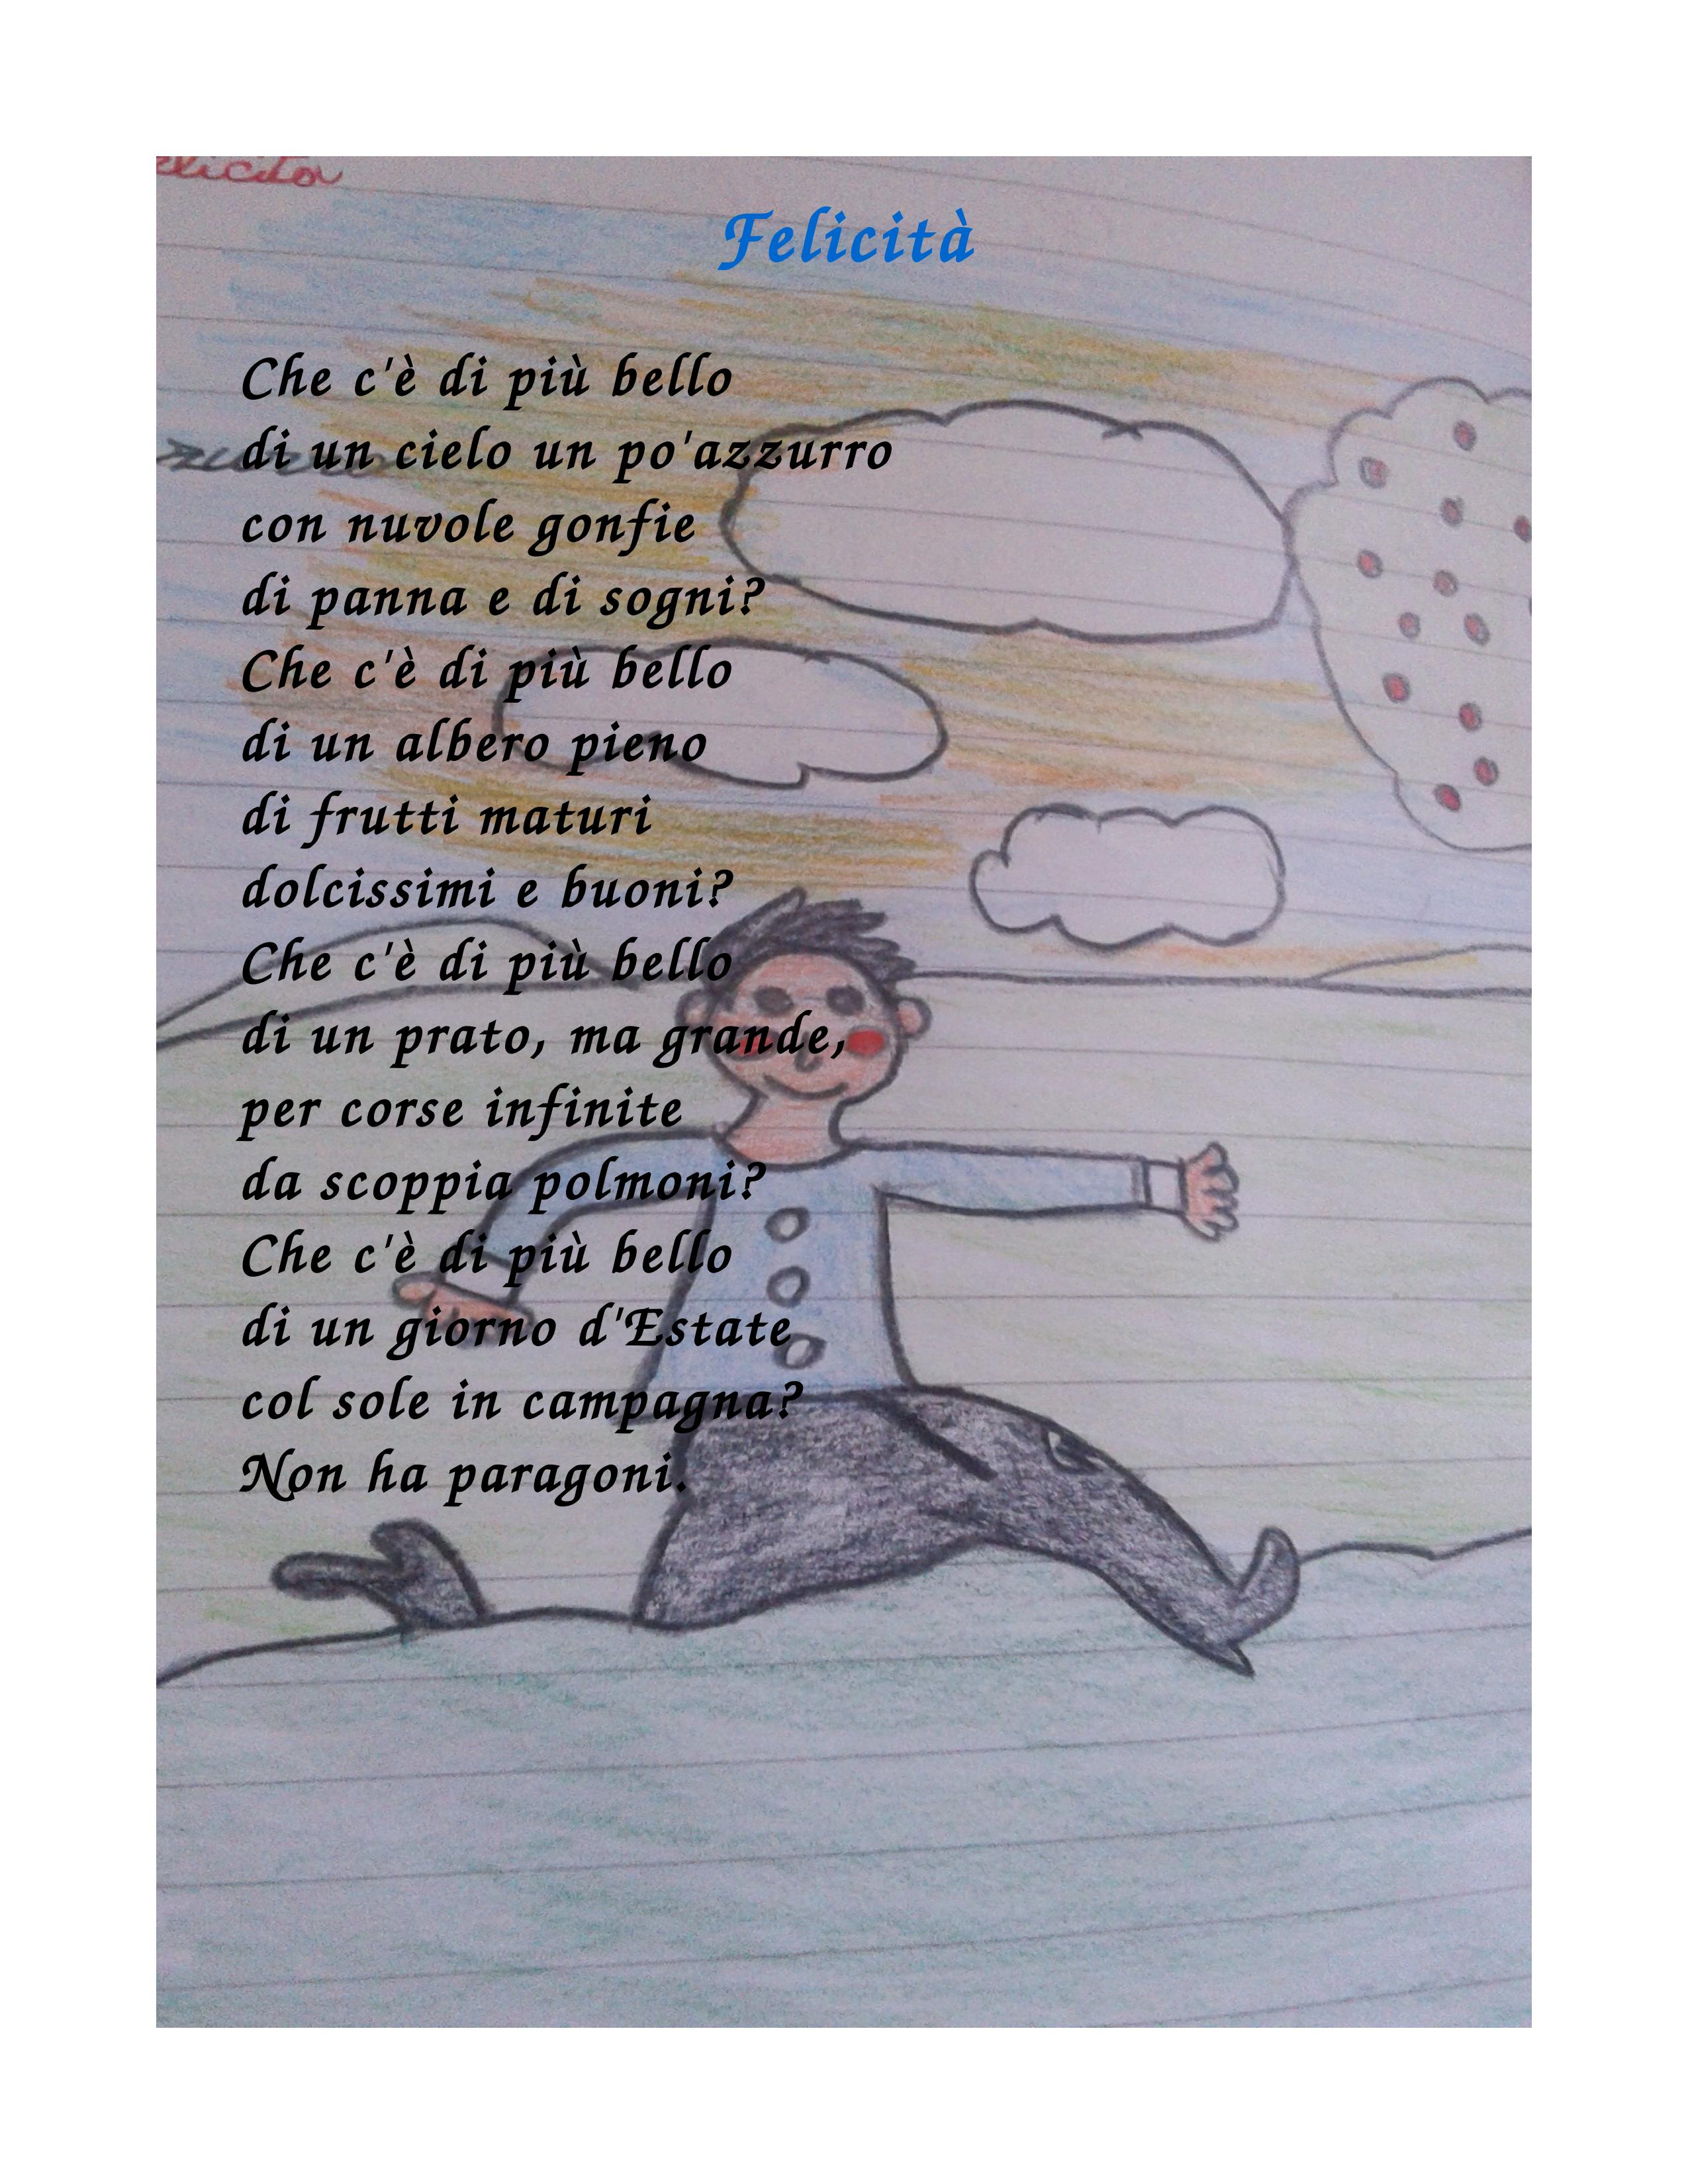 elicità
Felicità
Che c'è di più bello
di un cielo un po'azzurro
con nuvole gonfie
di panna e di sogni?
Che c'è di più bello
di un albero pieno
di frutti maturi
dolcissimi e buoni?
Che c'è di più bello
di un prato, ma grande,
per corse infinite
da scoppia polmoni?
Che c'è di più bello
di un giorno d'Estate
col sole in campagna?
Non ha paragoni.